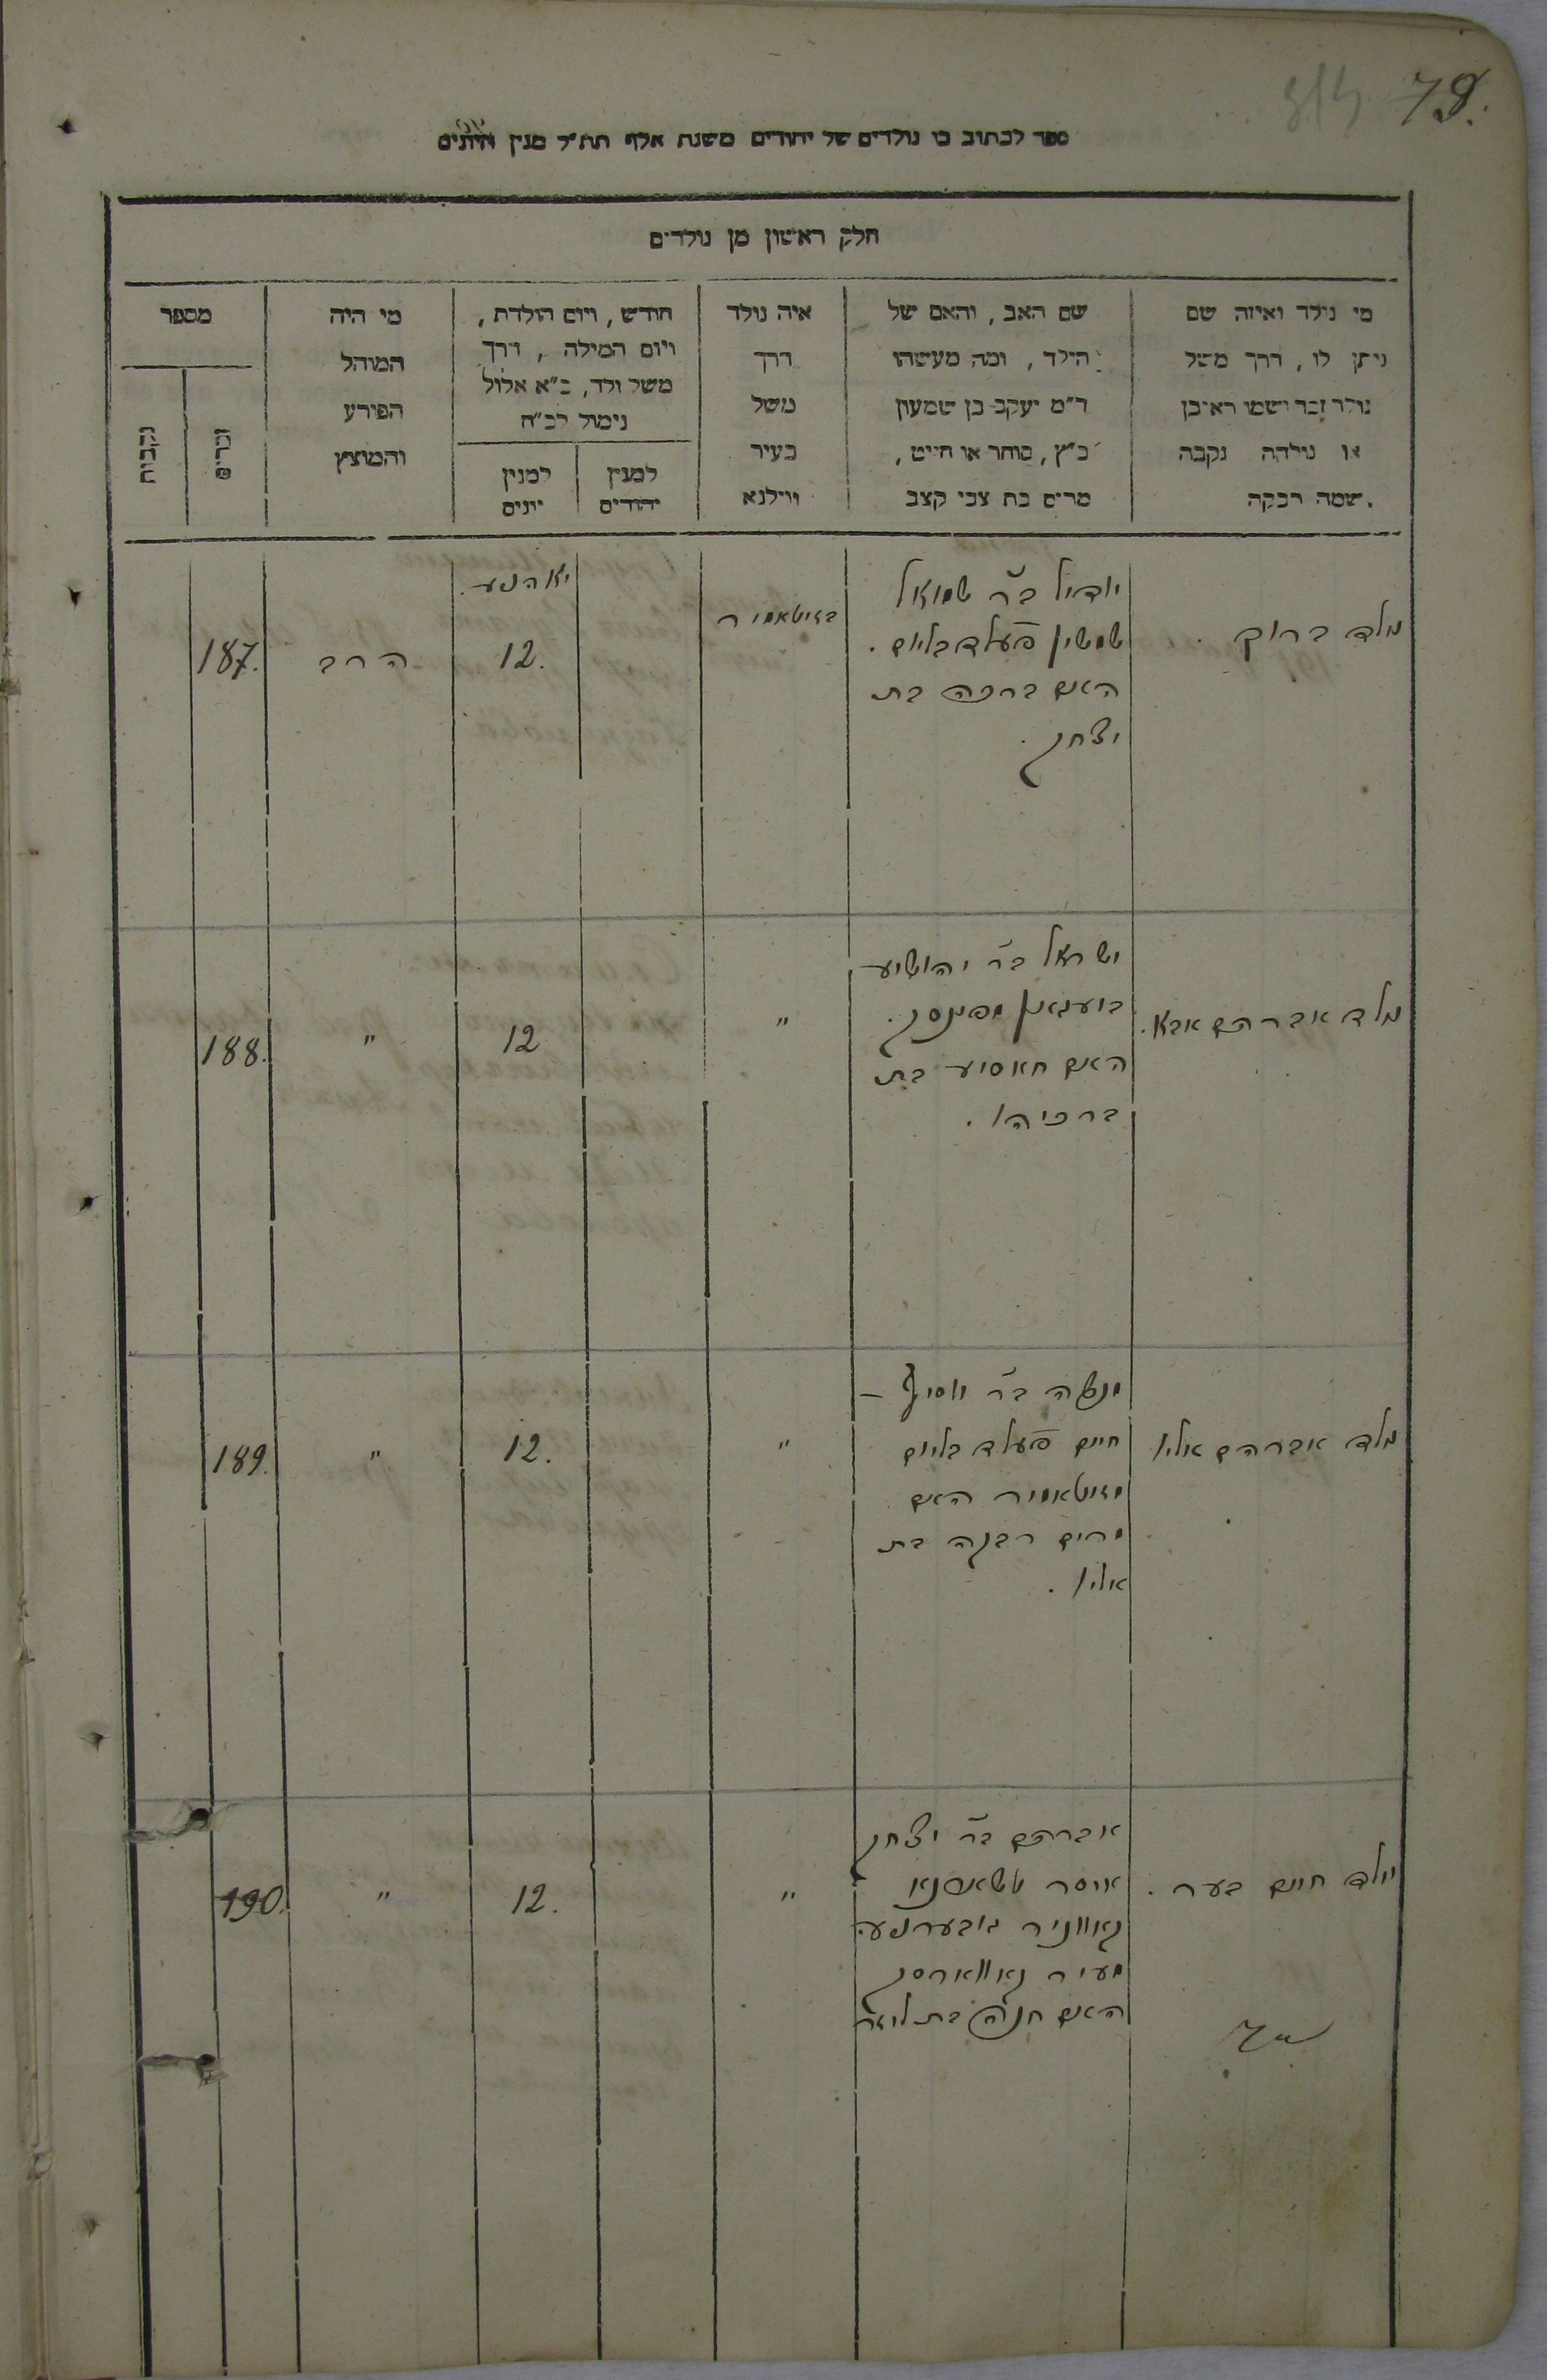 79.
ספר לכתוב בו נולדים של יהודים משנת אלף תת״ל מנין
חלק ראשון מן נולדים
מי נולד ואיזה שם
ניתן לו, דרך משל
נולד זכר ושמו ראובן
או נולדה נקבה
שמה רבקה.
שם האב, והאם של
הילד, ומה מעשהו
ר״מ יעקב בן שמעון
כ״ץ, סוחר או חייט,
מרים בת צבי קצב
איה נולד
דרך
משל
בעיר
ווילנא
חודש, ויום הולדת,
ויום המילה, דרך
משל ולד, כ״א אלול
נימול לכ״ח
למנין
יהודים
למנין
יונים
מי היה
המוהל
הפורע
והמוצץ
מספר
זכרים
נקבות
נולד ברוך.
יודיל ב״ר שמואל
האם ברכה בת
יצחק.
בזיטאמיר
12.
הרב
187.
נולד אברהם אבא.
ישראל ב״ר יהושיע
האם חאסיע בת
ברכיהו.
"
12
"
188.
נולד אברהם אליו
מנשה ב״ר יוסיף –
חיים
מזיטאמיר האם
מרים רבקה בת
אליו.
"
12.
"
189.
נולד חיים בער.
אברהם ב״ר יצחק
מעיר
האם חנה בת ליזר
"
12.
"
190.